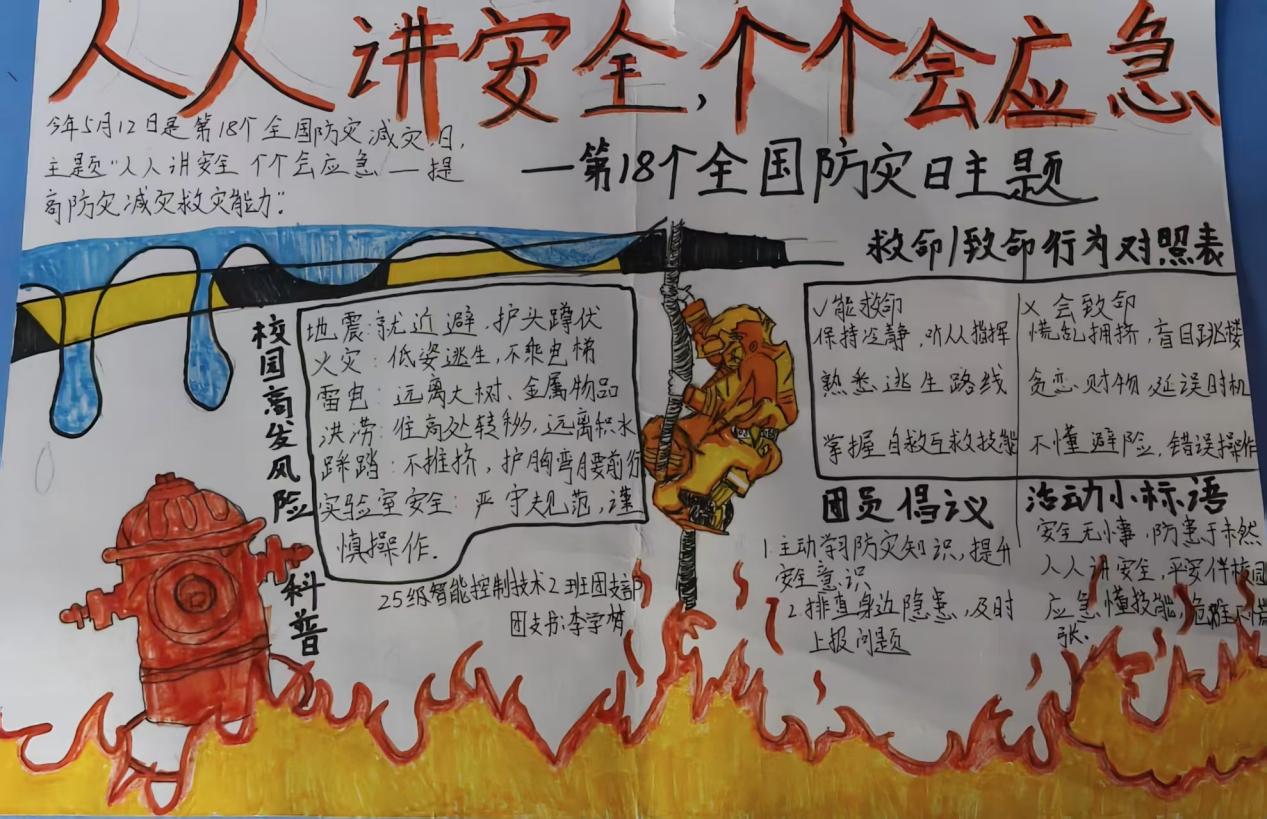 人人讲安全,个个会应急
今年5月12日是第18个全国防灾减灾日,
主题"人人讲安全 个个会应急 — 提
高防灾减灾救灾能力".
—第18个全国防灾日主题
校园高发风险科普
地震:就近避,护头蹲伏
火灾:低姿逃生,不乘电梯
雷电:远离大树、金属物品
洪涝:往高处转移,远离积水
踩踏:不推挤,护胸弯腰前行
实验室安全:严守规范,谨
慎操作.
25级智能控制技术2班团支部
团支书:李学
救命/致命行为对照表
✓能救命
保持冷静,听从指挥
熟悉逃生路线
掌握自救互救技能
×会致命
慌乱拥挤,盲目跳楼
贪恋财物 延误时机
不懂避险,错误操作
团员倡议
1.主动学习防灾知识,提升
安全意识
2.排查身边隐患,及时
上报问题
活动小标语
安全无小事,防患于未然
人人讲安全,平安伴校园
应急懂技能,危难不慌
张.